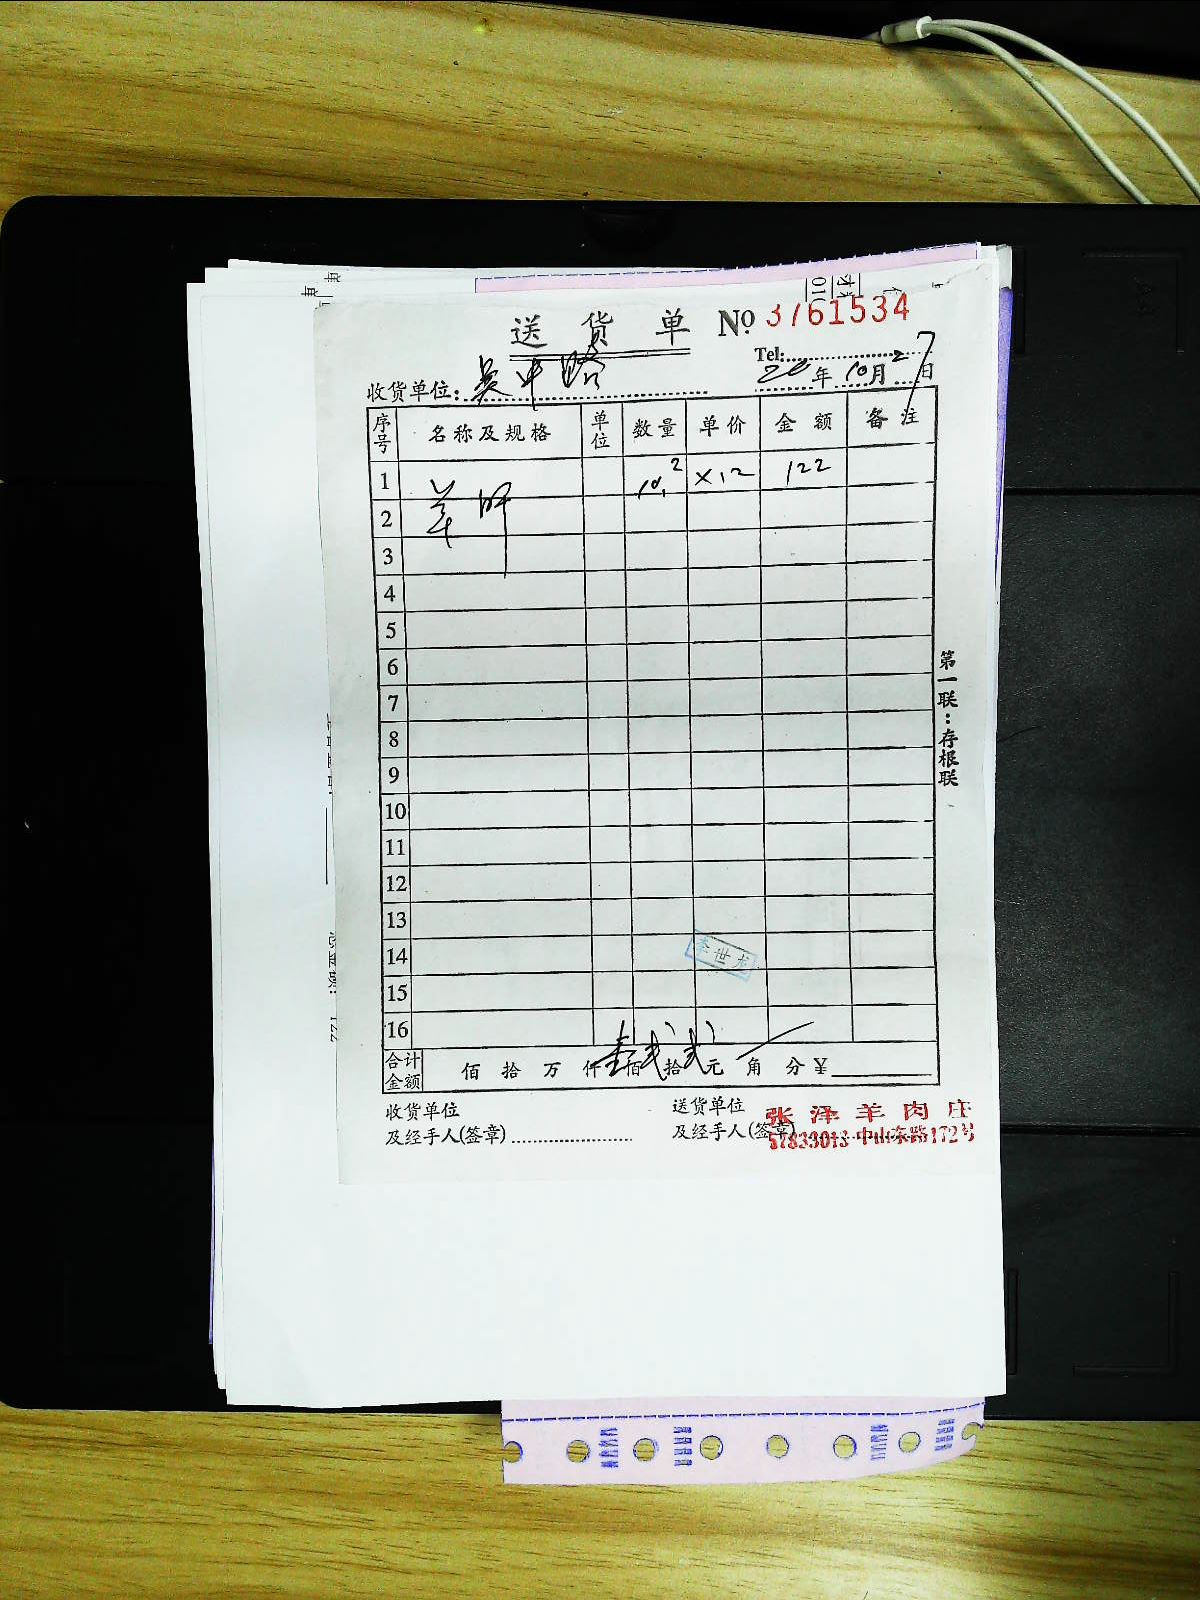 送货单 №3761534
Tel:
收货单位: 吴中路 20年10月27日
序号 名称及规格 单位 数量 单价 金额 备注
1 羊肝 10.2 ×12 122
2
3
4
5
6
7
8
9
10
11
12
13
14
李世龙
15
16
合计金额 佰 拾 万 仟 壹佰 贰拾 贰元 角 分 ¥
第一联:存根联
收货单位 送货单位 张泽羊肉庄
及经手人(签章) 及经手人(签章) 57833013 中山东路172号